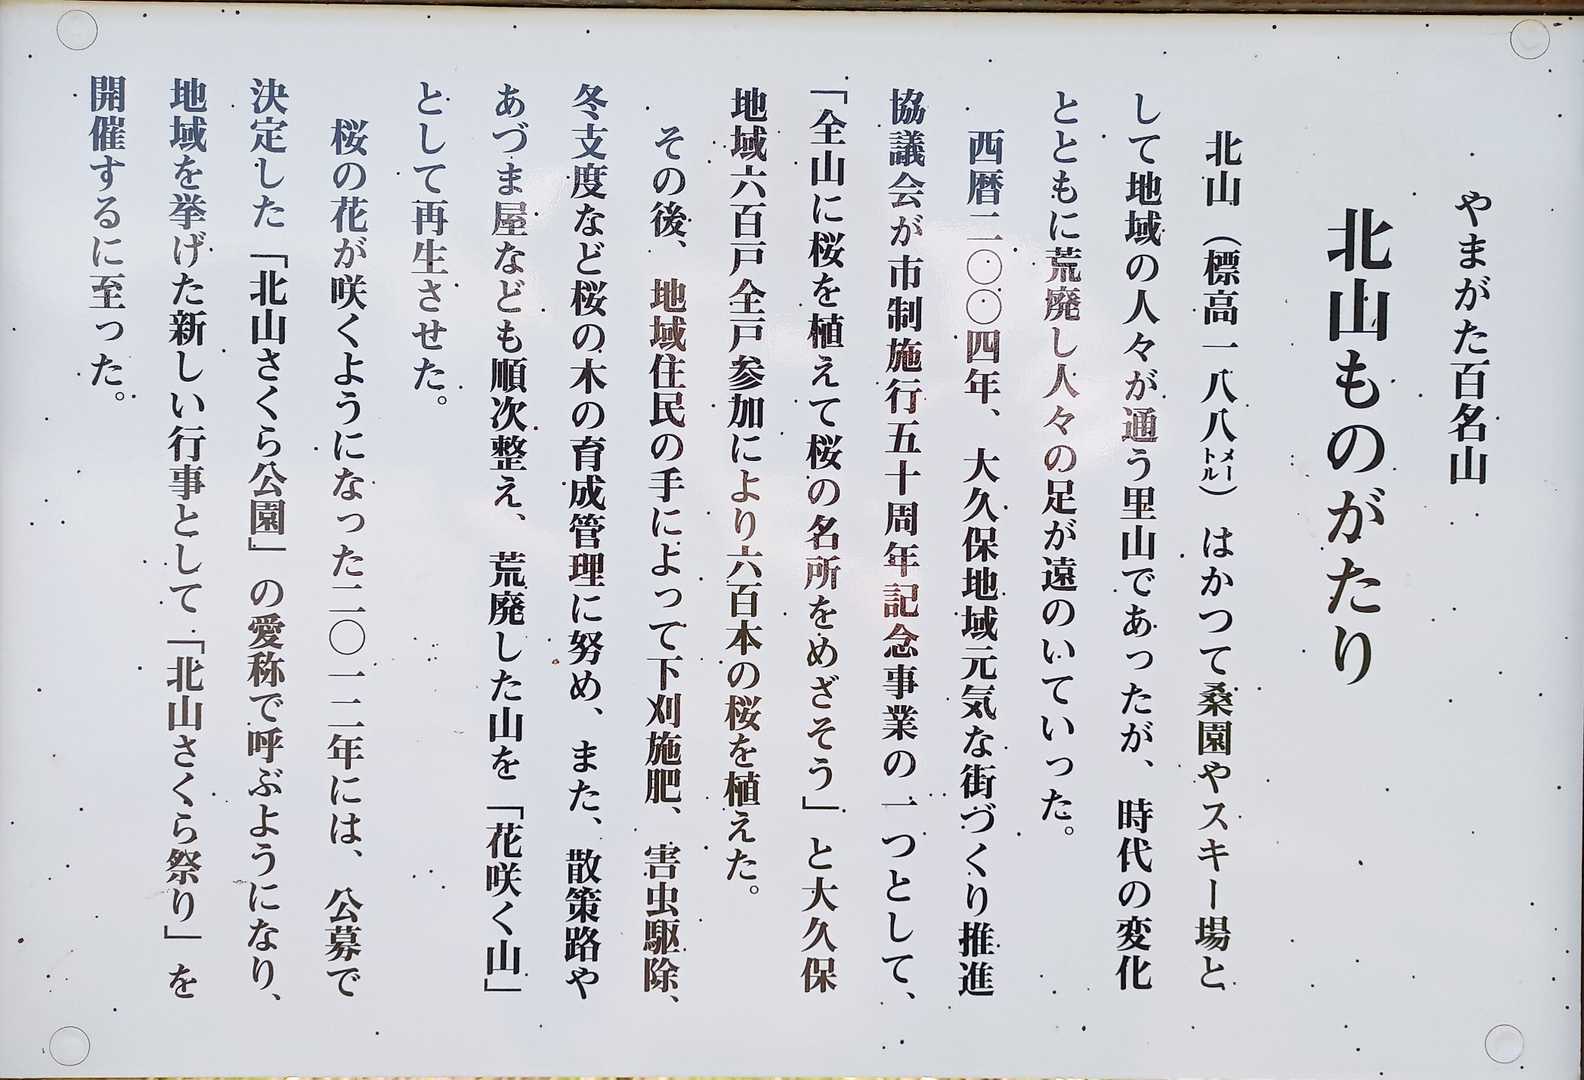 やまがた百名山
北山ものがたり
北山（標高一八八メートル）はかつて桑園やスキー場と
して地域の人々が通う里山であったが、時代の変化
とともに荒廃し人々の足が遠のいていった。
西暦二〇〇四年、大久保地域元気な街づくり推進
協議会が市制施行五十周年記念事業の一つとして、
「全山に桜を植えて桜の名所をめざそう」と大久保
地域六百戸全戸参加により六百本の桜を植えた。
その後、地域住民の手によって下刈施肥、害虫駆除、
冬支度など桜の木の育成管理に努め、また、散策路や
あづま屋なども順次整え、荒廃した山を「花咲く山」
として再生させた。
桜の花が咲くようになった二〇一二年には、公募で
決定した「北山さくら公園」の愛称で呼ぶようになり、
地域を挙げた新しい行事として「北山さくら祭り」を
開催するに至った。